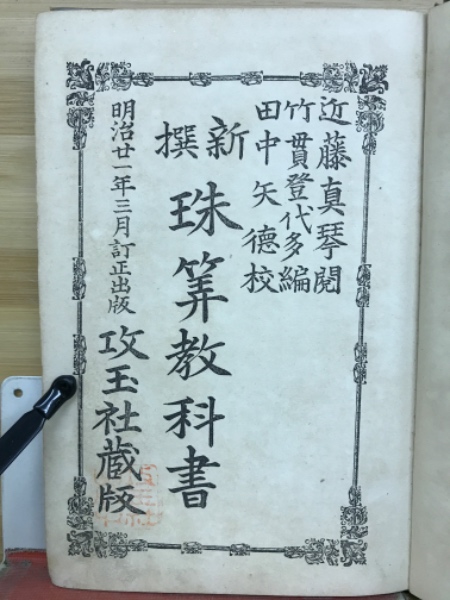 近藤真琴閲
竹貫登代多編
田中矢徳校
新撰
珠筭教科書
明治廿一年三月訂正出版
攻玉社蔵版